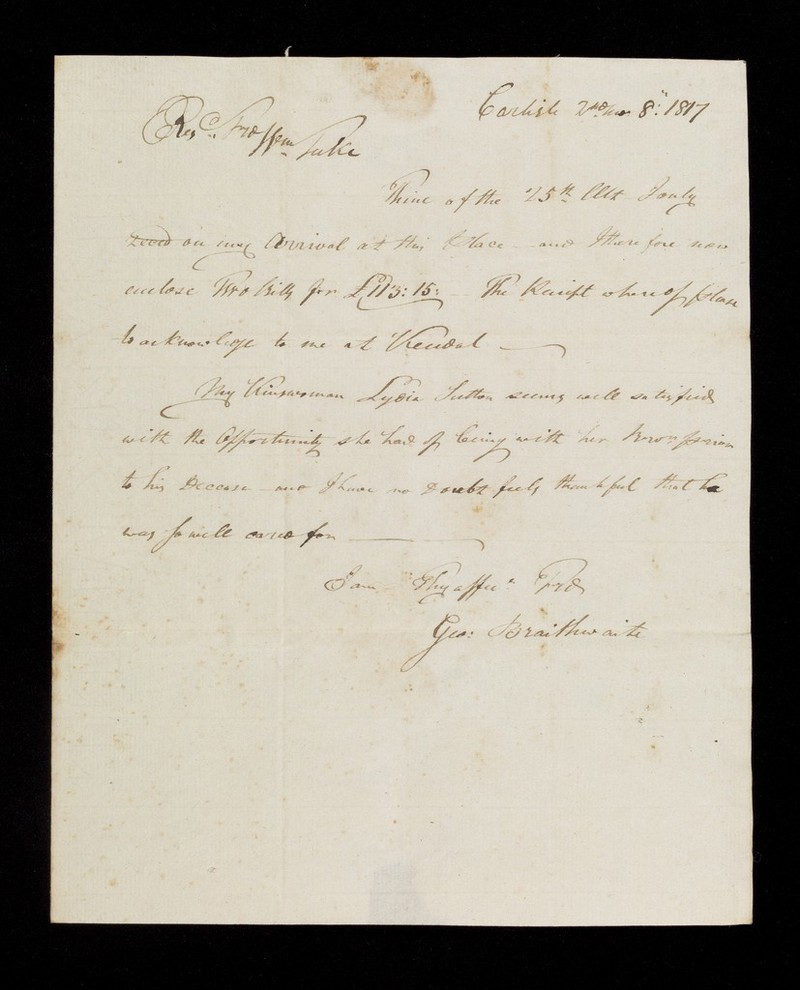 Carlisle 2nd mo 8: 1817
Resd. Frd Wm Tuke
Thine of the 25th Ulto I only
recd on my Arrival at this Place and therefore now
enclose Two Bills for £113:15: The Receipt whereof please
to acknowledge to me at Kendal
My Kinswoman Lydia Sutton seems well satisfied
with the Opportunity she had of being with her Bror. prior
to his Decease and I have no Doubt feels thankful that he
was so well cared for
I am Thy affte. Frd
Geo: Braithwaite